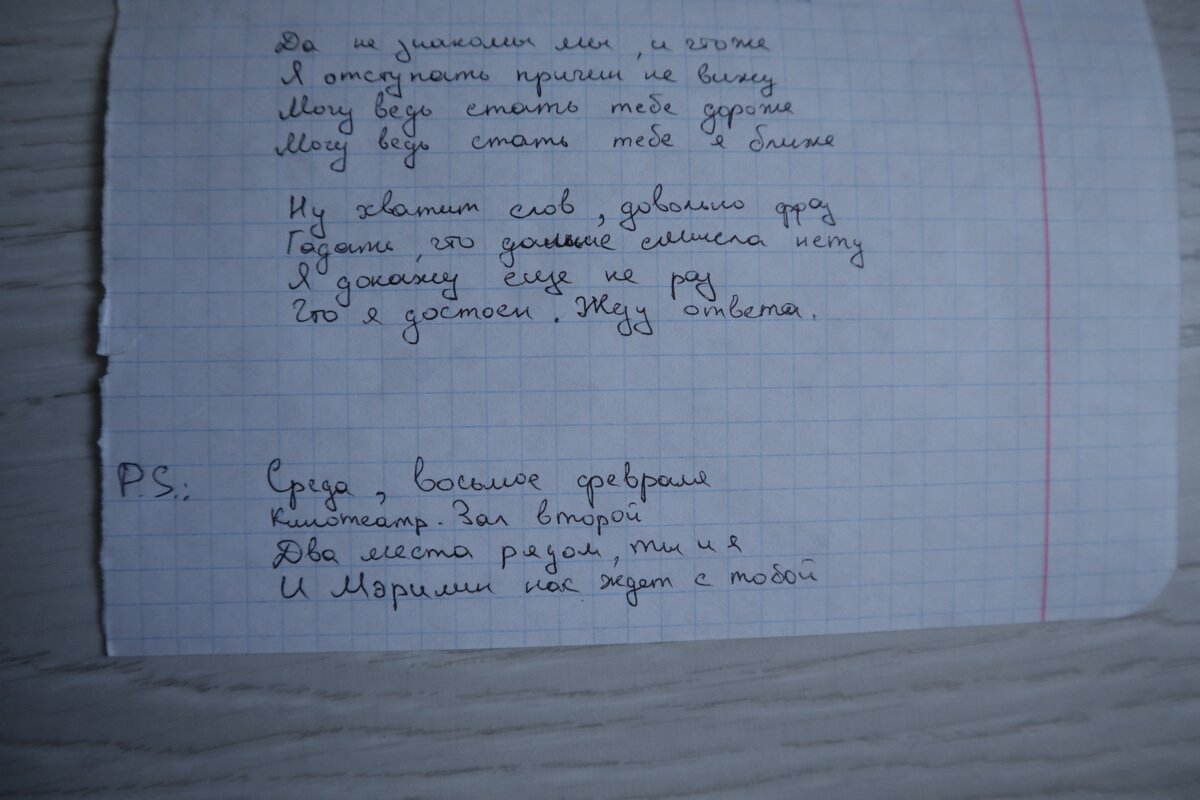 Да не знакомы мы, и чтоже
Я отступать причин не вижу
Могу ведь стать тебе дороже
Могу ведь стать тебе я ближе
Ну хватит слов, довольно фраз
Гадать, что дальше смысла нету
Я докажу еще не раз
Что я достоен. Жду ответа.
P.S.: Среда, восьмое февраля
Кинотеатр. Зал второй
Два места рядом, ты и я
И Мэрилин нас ждет с тобой